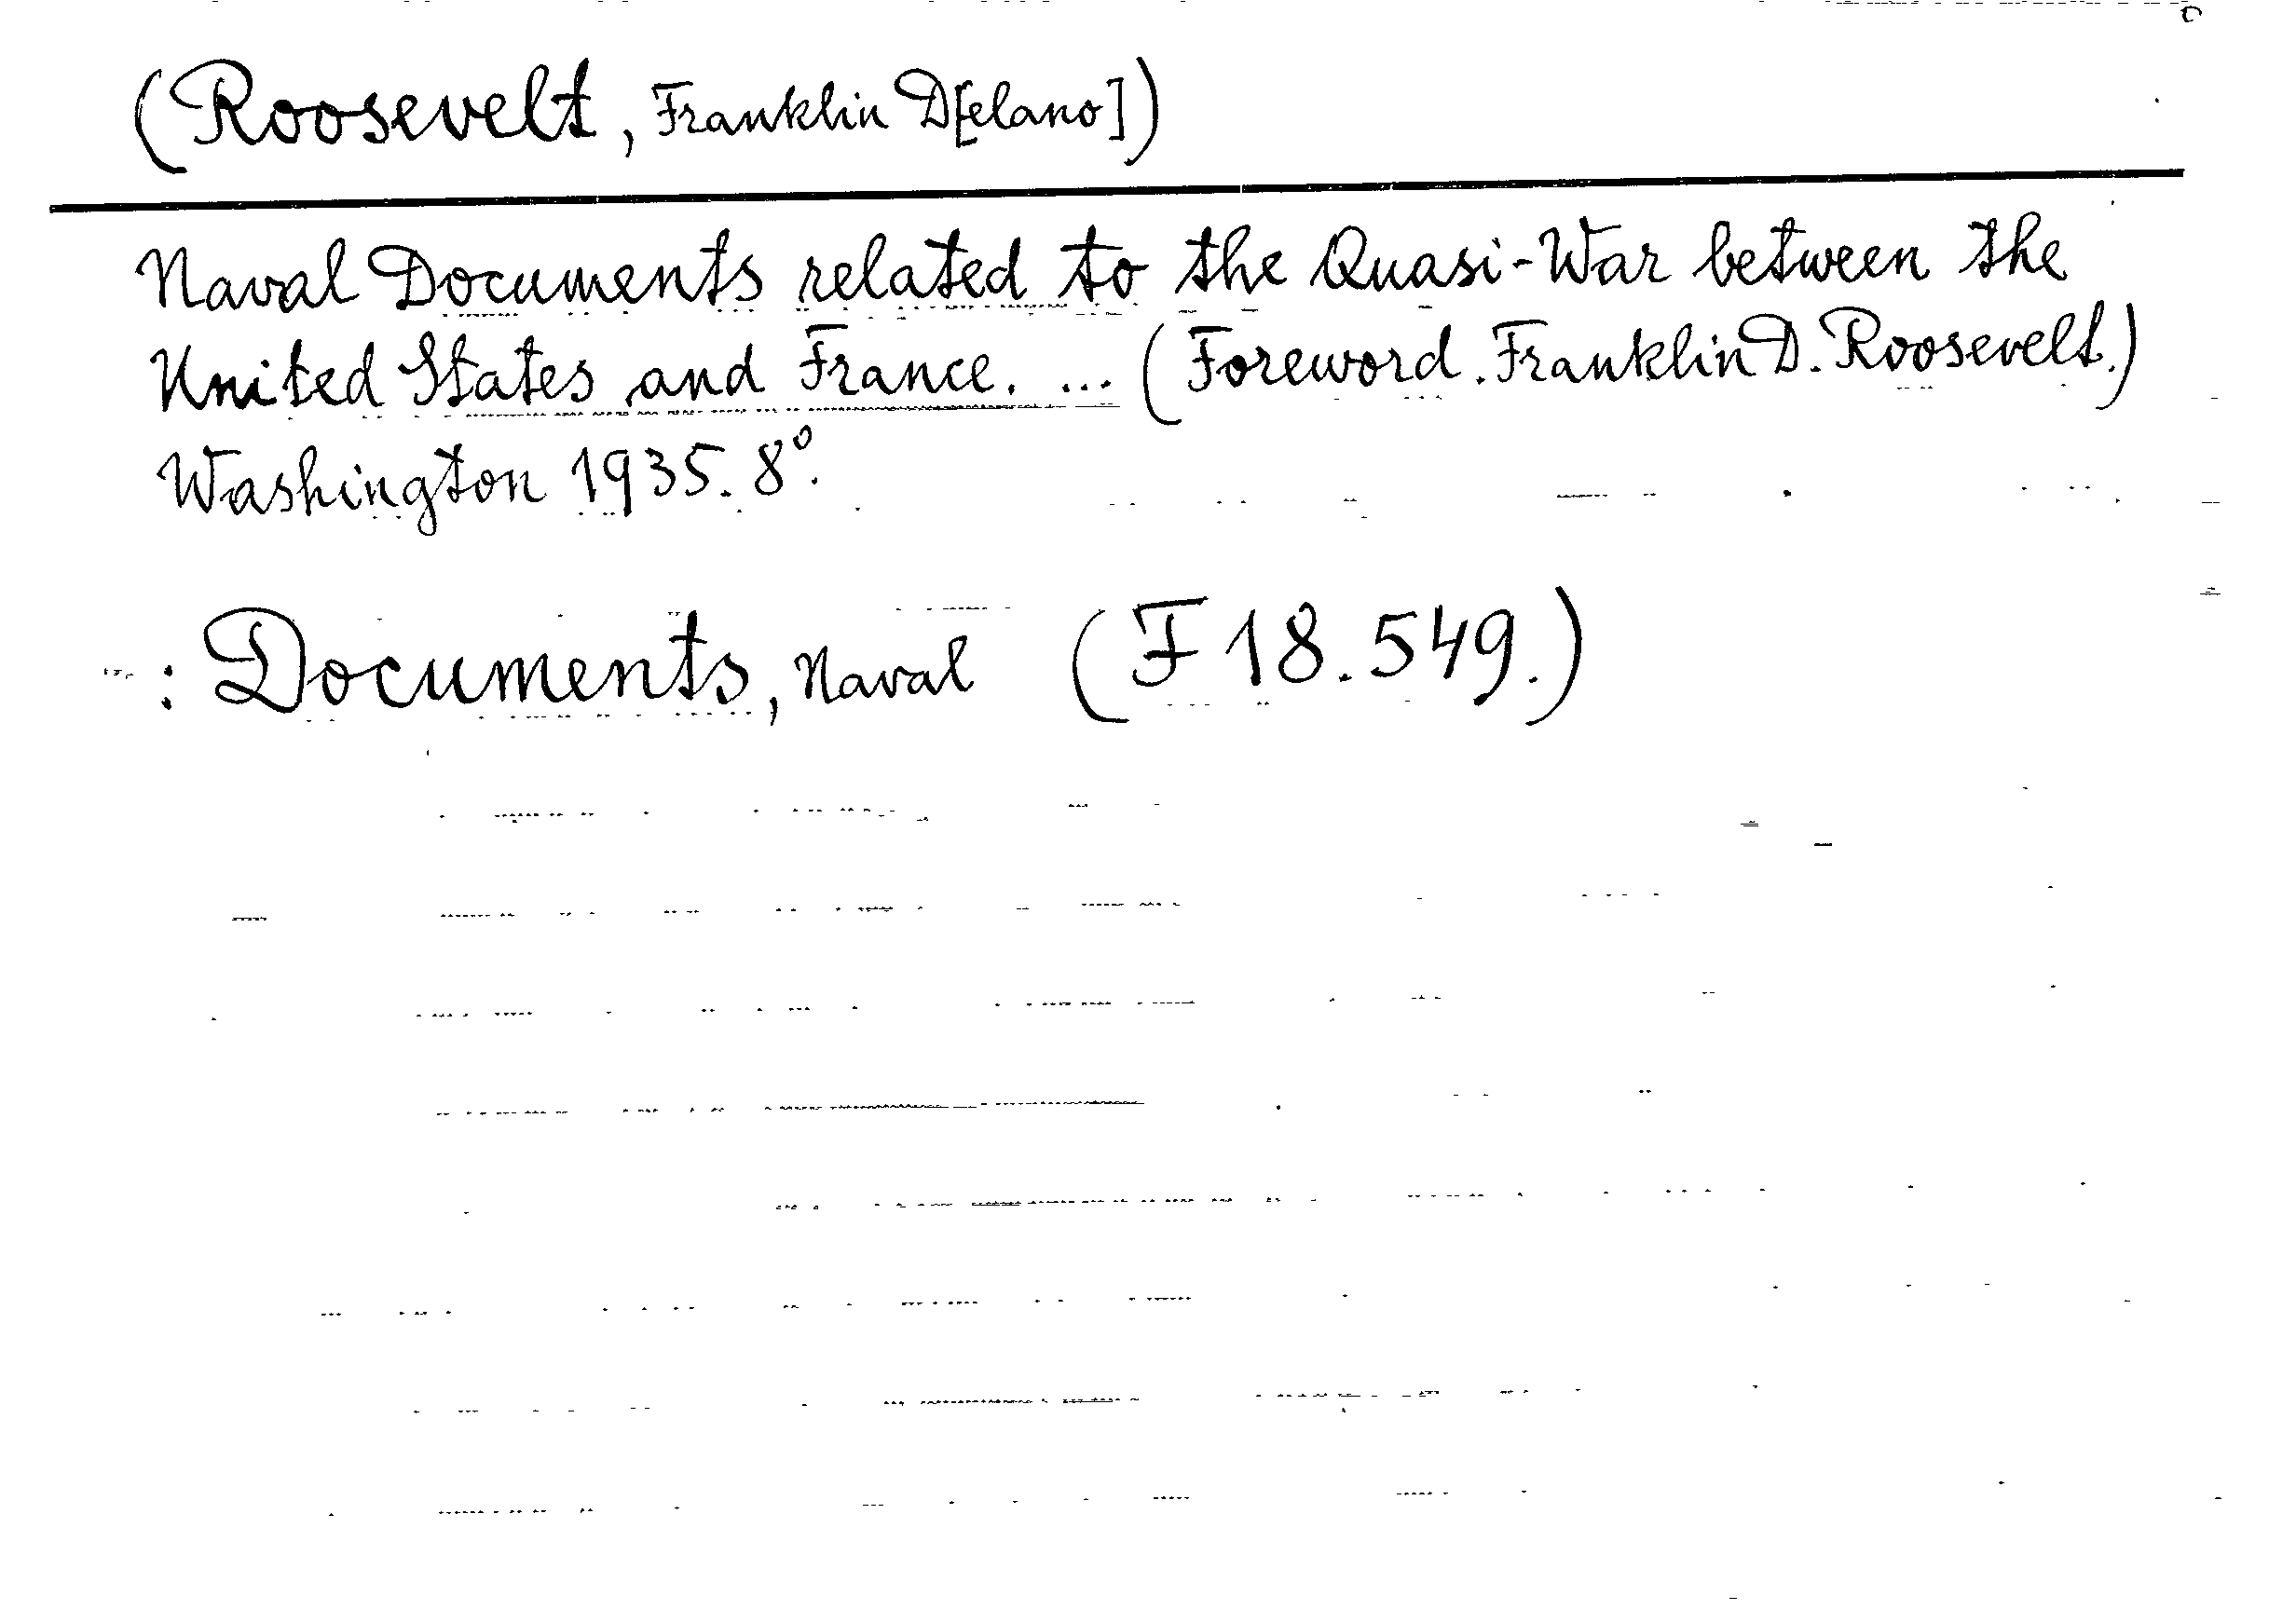 (Roosevelt, Franklin D[elano])
Naval Documents related to the Quasi-War between the
United States and France. ... (Foreword. Franklin D. Roosevelt.)
Washington 1935. 8°.
: Documents, Naval (F 18.549.)